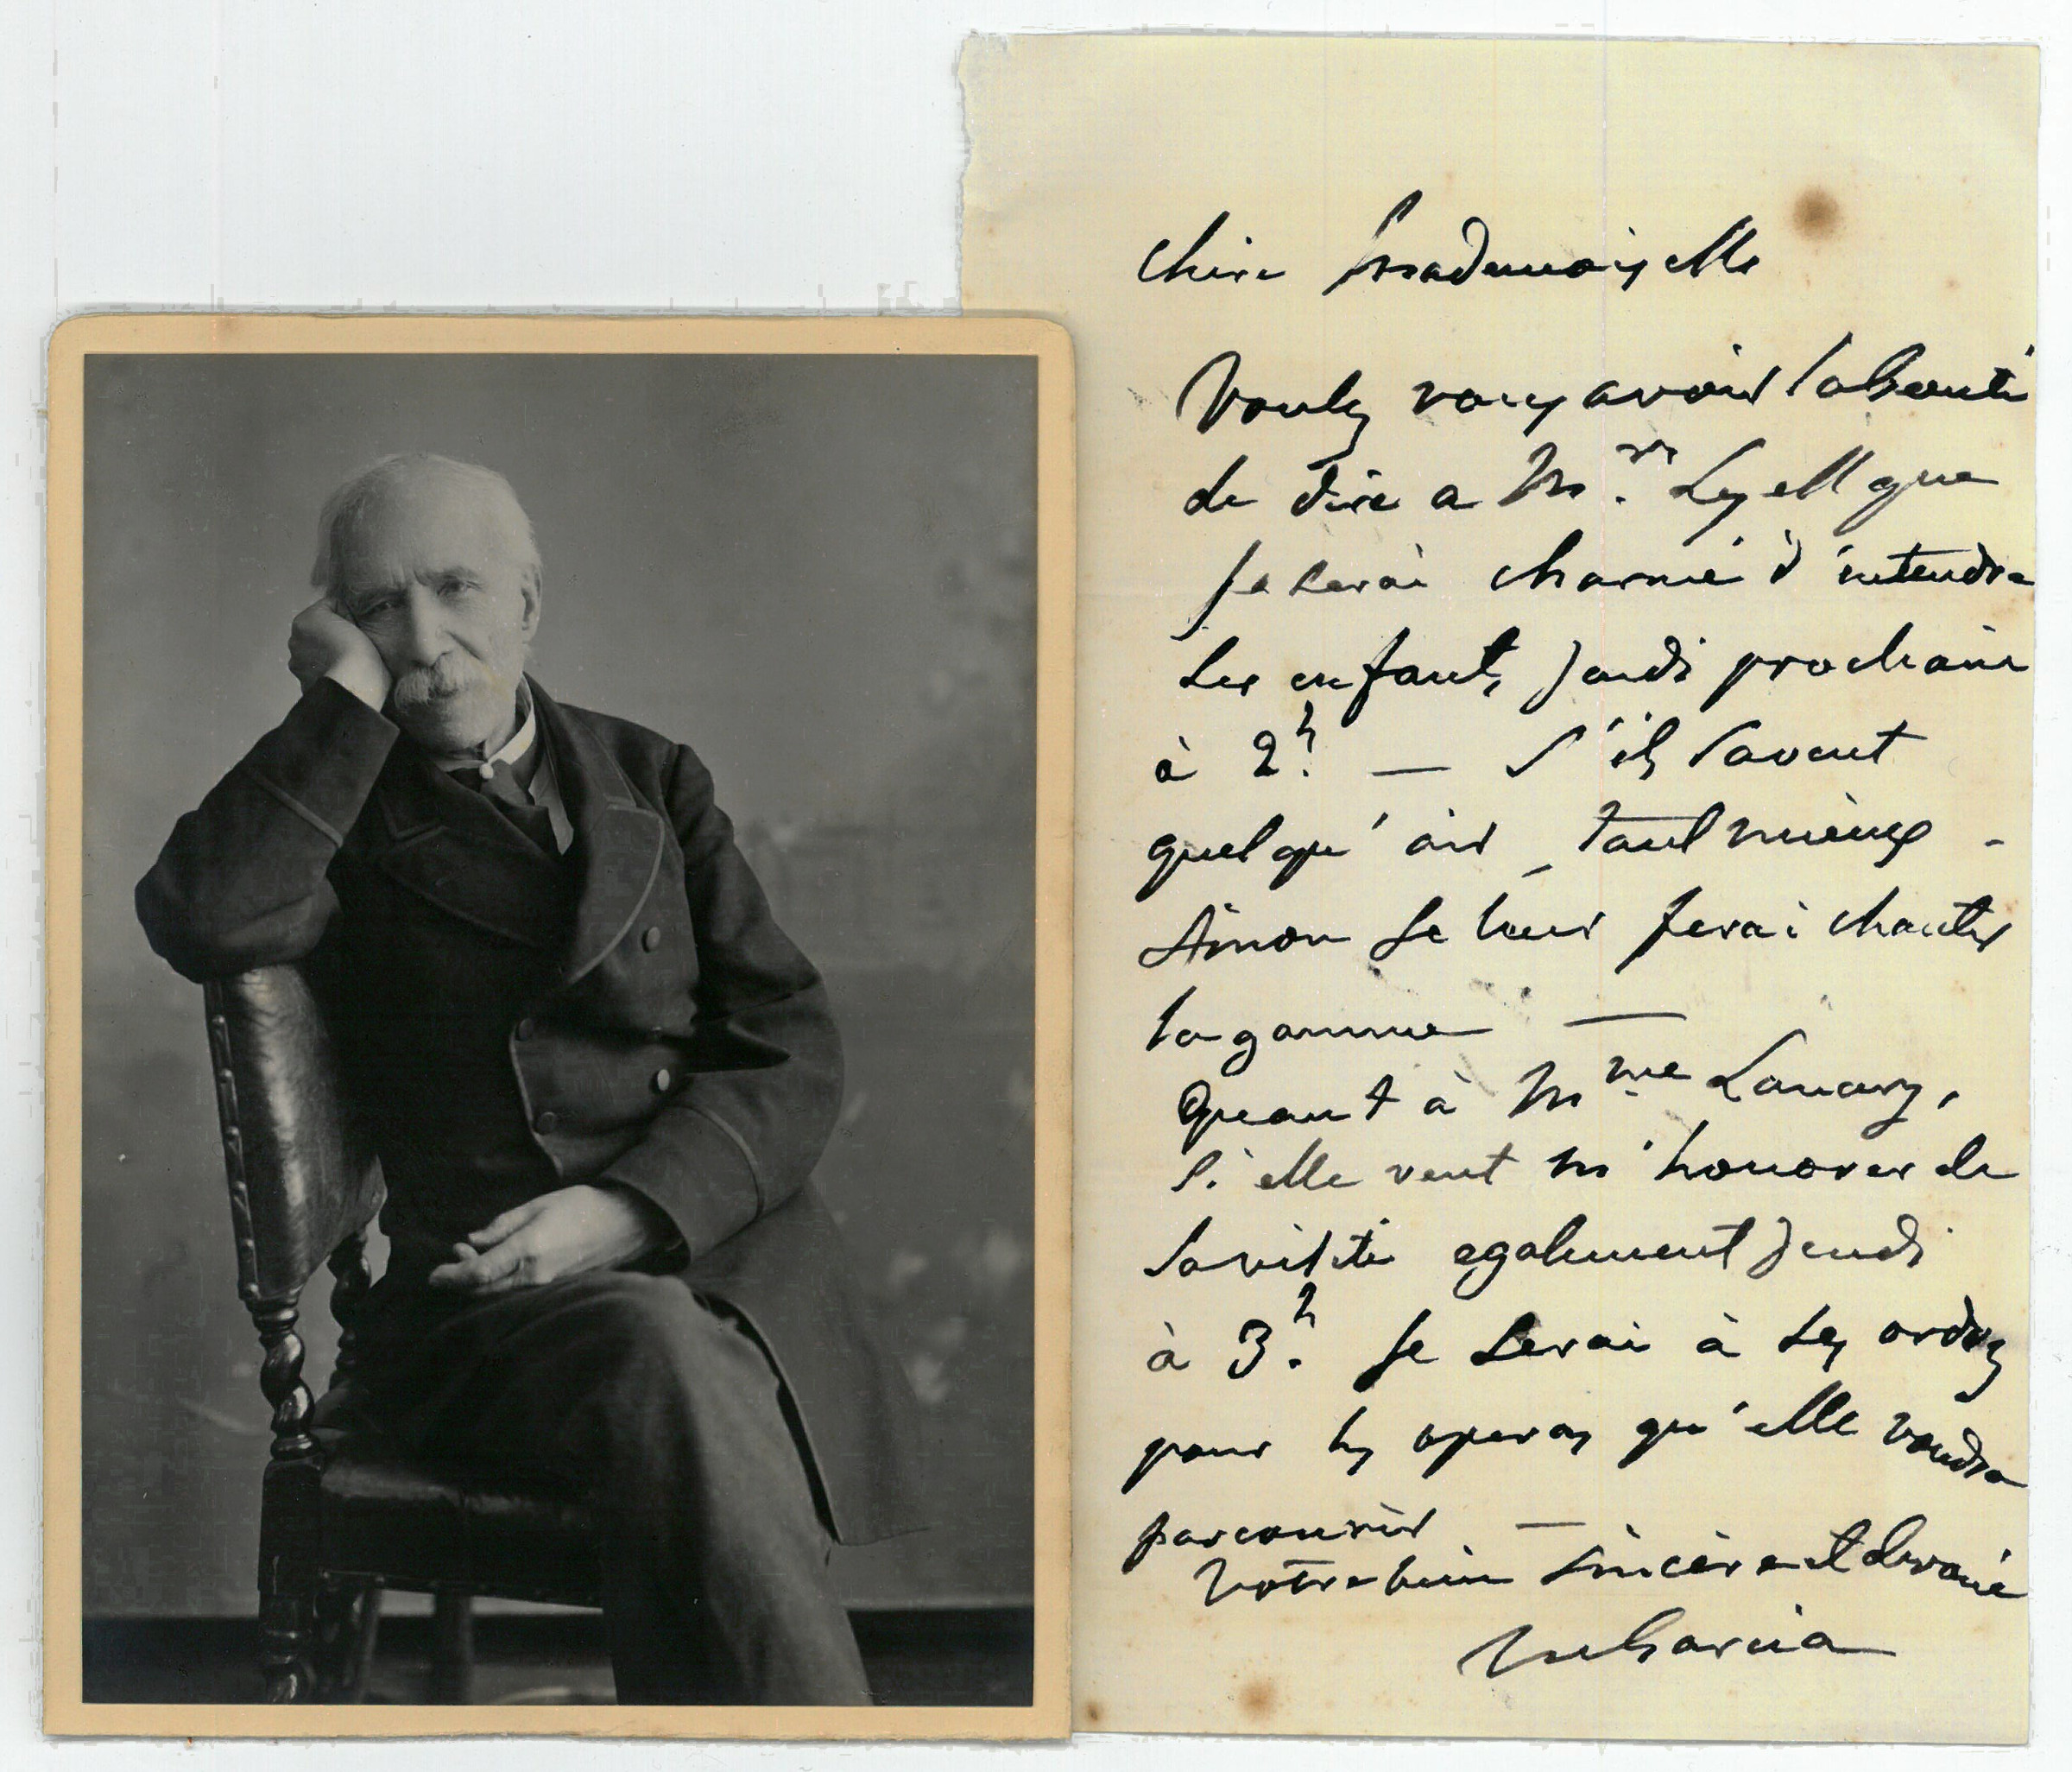 Chère Mademoiselle
Voulez vous avoir la bonté
de dire a Mrs. Lyell que
je serai charmé d'entendre
les enfants, Jeudi prochain
à 2h. — S'ils savent
quelqu' air, tant mieux -
Sinon je leur ferai chanter
la gamme —
Quant à Mme
S'elle veut m'honorer de
sa visite egalement Jeudi
à 3h. je serai à ses ordres
pour les operas qu'elle voudra
parcourir —
Votre bien sincère et devoué
MGarcia